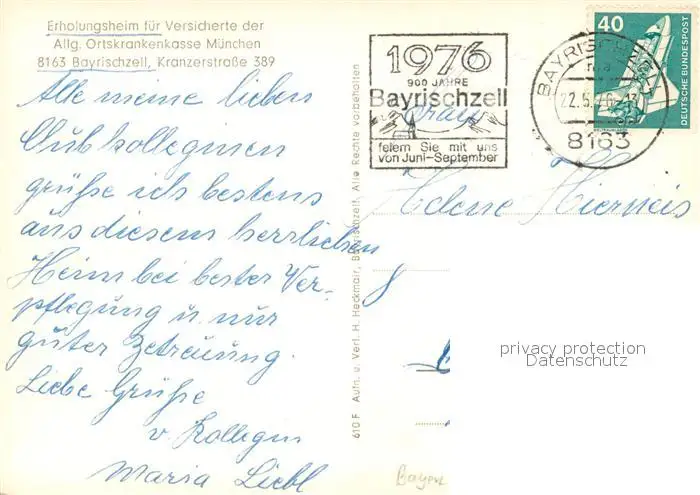 Erholungsheim für Versicherte der
Allg. Ortskrankenkasse München
8163 Bayrischzell, Kranzerstraße 389
Alle meine lieben
Clubkolleginnen
grüße ich bestens
aus diesem herrlichen
Heim bei bester Ver-
pflegung u. nur
guter Betreuung.
Liebe Grüße
v. Kollegin
Maria Liebl
610 F Aufn. u. Verl. H. Heckmair, Bayrischzell. Alle Rechte vorbehalten
1976
900 JAHRE
Bayrischzell
feiern Sie mit uns
von Juni-September
BAYRISCHZELL
22.5.76-13
8163
40
DEUTSCHE BUNDESPOST
Frau
Helene Hierneis
privacy protection
Datenschutz
Bayern